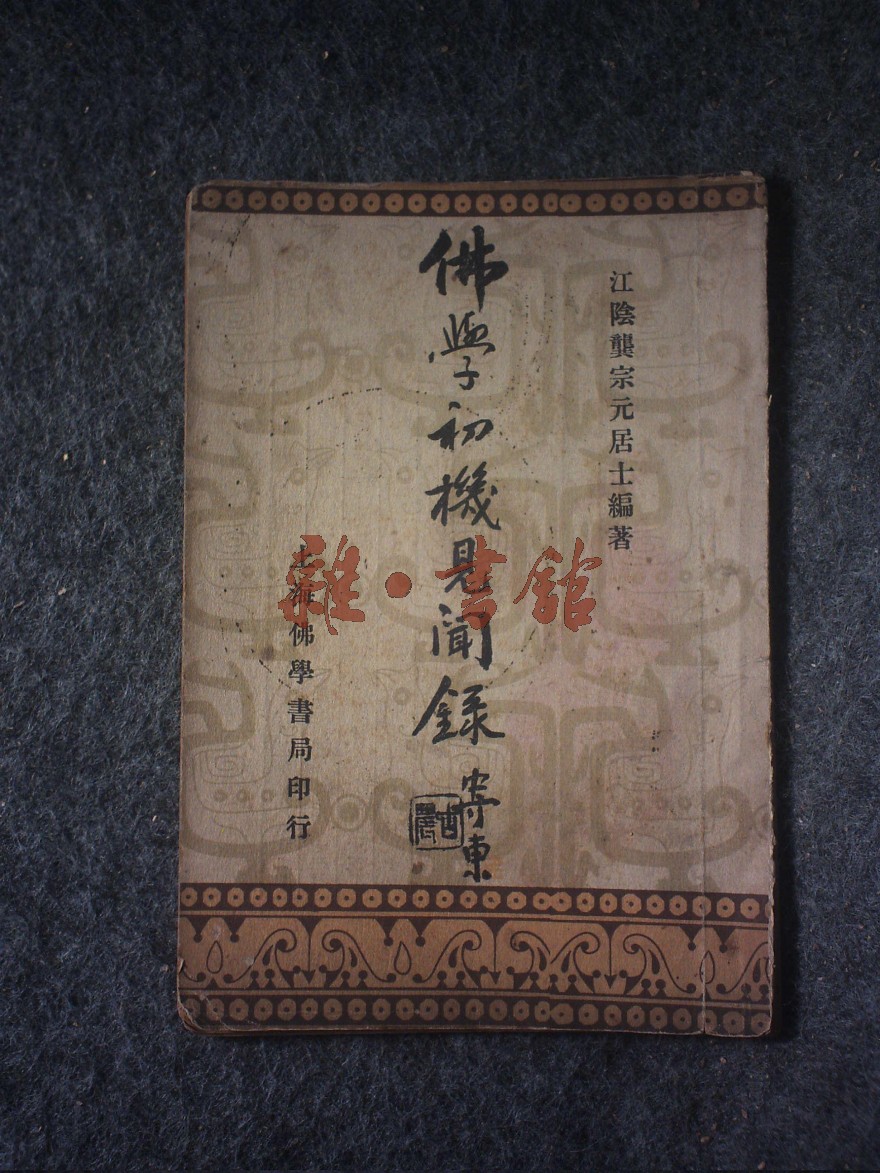 江陰龔宗元居士編著
佛學初機見聞錄
寄東
上海佛學書局印行
雜·書館